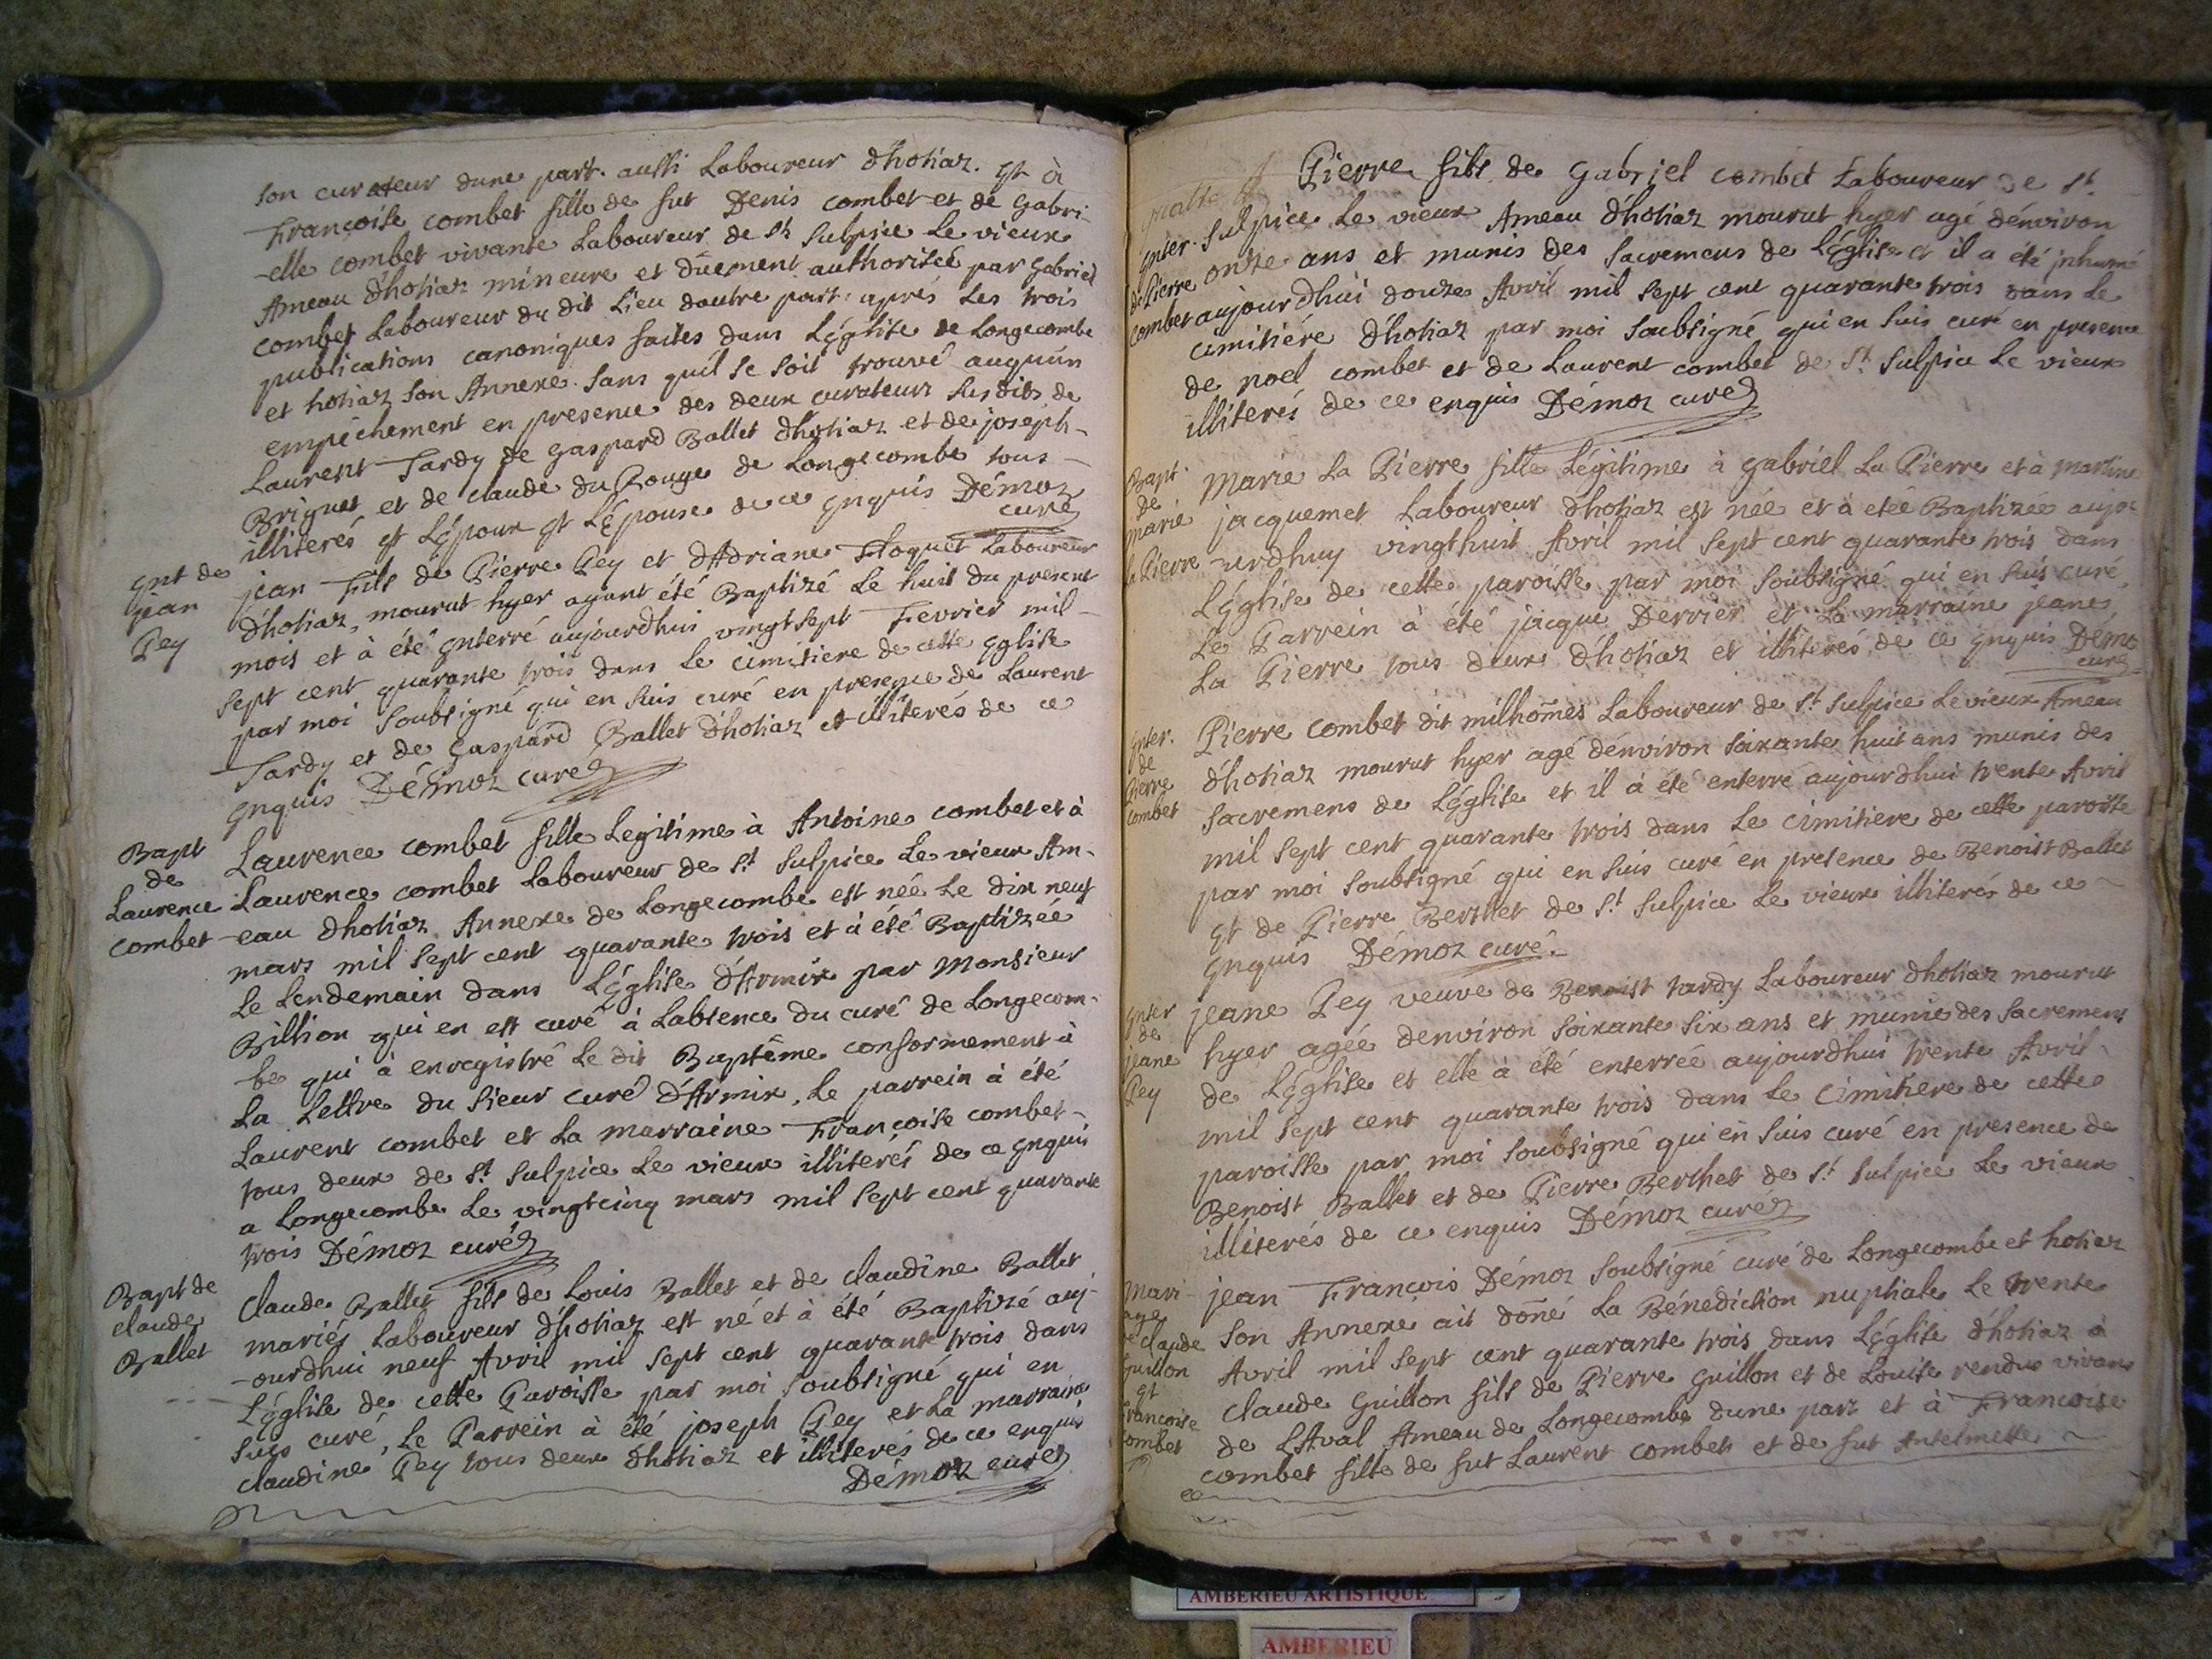 son curateur dune part. aussi Laboureur d'hotiaz. Et à
Françoise combet fille de fut Denis combet et de Gabri-
-elle combet vivante Laboureur de St Sulpice Le vieux
Ameau d'hotiaz mineure et düement authorisée par Gabriel
combet Laboureur du dit Lieu dautre part. aprés Les trois
publications canoniques faites dans L'Eglise de Longecombe
et hotiaz son Annexe. sans qu'il se soit trouvé auquun
empêchement en presence des deux curateurs susdits de
Laurent Tardy de Gaspard Ballet d'hotiaz et de joseph-
Brignet et de claude du Rouge de Longecombe tous-
illiterés et L'Epoux et L'Epouse de ce Enquis Démoz
curé
Ent de
jean
Pey
jean Fils de Pierre Pey et d'Adriane Floquet Laboureur
d'hotiaz, mourut hyer ayant été Baptizé Le huit du present
mois et à été Enterré aujourdhui vingtsept Fevrier mil-
sept cent quarante trois dans Le cimitiere de cette Eglise
par moi soubsigné qui en suis curé en presence de Laurent
Tardy et de Gaspard Ballet d'hotiaz et illiterés de ce
Enquis Démoz curé
Bapt
de
Laurence
combet
Laurence combet fille Legitime à Antoine combet et à
Laurence combet Laboureur de St Sulpice Le vieux Am-
-eau d'hotiaz Annexe de Longecombe est née Le dix neuf
mars mil sept cent quarante trois et à été Baptizéé
Le Lendemain dans L'Eglise d'Armix par Monsieur
Billion qui en est curé à Labsence du curé de Longecom-
-be qui à enregistré Le dit Baptême conformement à
La Lettre du sieur curé d'Armix, Le parrein à été
Laurent combet et La marraine Françoise combet-
tous deux de St Sulpice Le vieux illiterés de ce Enquis
a Longecombe Le vingtcinq mars mil sept cent quarante
trois Démoz curé
Bapt de
claude
Ballet
Claude Ballet fils de Louis Ballet et de claudine Ballet
mariés Laboureur d'hotiaz est né et à été Baptizé auj-
-ourdhui neuf Avril mil sept cent quarante trois dans
L'Eglise de cette Paroisse par moi soubsigné qui en
suis curé, Le Parrein à été joseph Pey et La marraine
claudine Pey tous deux d'hotiaz et illiterés de ce enquis
Démoz curé
Enter.
de Pierre
combet
Pierre fils de Gabriel combet Laboureur de St.
Sulpice Le vieux Ameau d'hotiaz mourut hyer agé d'énviron
onze ans et munis des sacremens de L'Eglise et il a été inhumé
aujourdhui douze Avril mil sept cent quarante trois dans Le
cimitiére d'hotiaz par moi soubsigné qui en suis curé en presence
de noel combet et de Laurent combet de St Sulpice Le vieux
illiterés de ce enquis Démoz curé
Bapt.
de
marie
la Pierre
Marie La Pierre fille Légitime à Gabriel La Pierre et à martine
jacquemet Laboureur d'hotiaz est née et à eteé Baptizée aujo-
-urdhuy vingthuit Avril mil sept cent quarante trois dans
L'Eglise de cette paroisse par moi soubsigné qui en suis curé,
Le Parrein à été jacque Derrier et La marraine jeane
La Pierre tous deux d'hotiaz et illiterés de ce Enquis Démoz
curé
Enter.
de
Pierre
combet
Pierre combet dit milhom̃es Laboureur de St Sulpice Le vieux Ameau
d'hotiaz mourut hyer agé d'énviron soixante huit ans munis des
sacremens de L'Eglise et il à été enterré aujourdhui trente Avril
mil sept cent quarante trois dans Le cimitiere de cette paroisse
par moi soubsigné qui en suis curé en presence de Benoist Ballet
Et de Pierre Berthet de St Sulpice Le vieux illiterés de ce
Enquis Démoz curé
Enter
de
jeane
Pey
jeane Pey veuve de Benoist tardy Laboureur d'hotiaz mourut
hyer agéé denviron soixante six ans et munie des sacremens
de L'Eglise et elle à été enterréé aujourdhui trente Avril
mil sept cent quarante trois dans Le cimitiere de cette
paroisse par moi soubsigné qui en suis curé en presence de
Benoist Ballet et de Pierre Berthet de St Sulpice Le vieux
illiterés de ce enquis Démoz curé
Mari-
age
de claude
Guillon
Et
Francoise
combet
jean François Démoz soubsigné curé de Longecombe et hotiaz
son Annexe ait doñé La Bénediction nuptiale Le trente
Avril mil sept cent quarante trois dans L'Eglise d'hotiaz à
claude Guillon fils de Pierre Guillon et de Louise rendue vivans
de LAval Ameau de Longecombe dune part et à Francoise
combet fille de fut Laurent combet et de fut Antelmette
AMBERIEU ARTISTIQUE
AMBERIEU